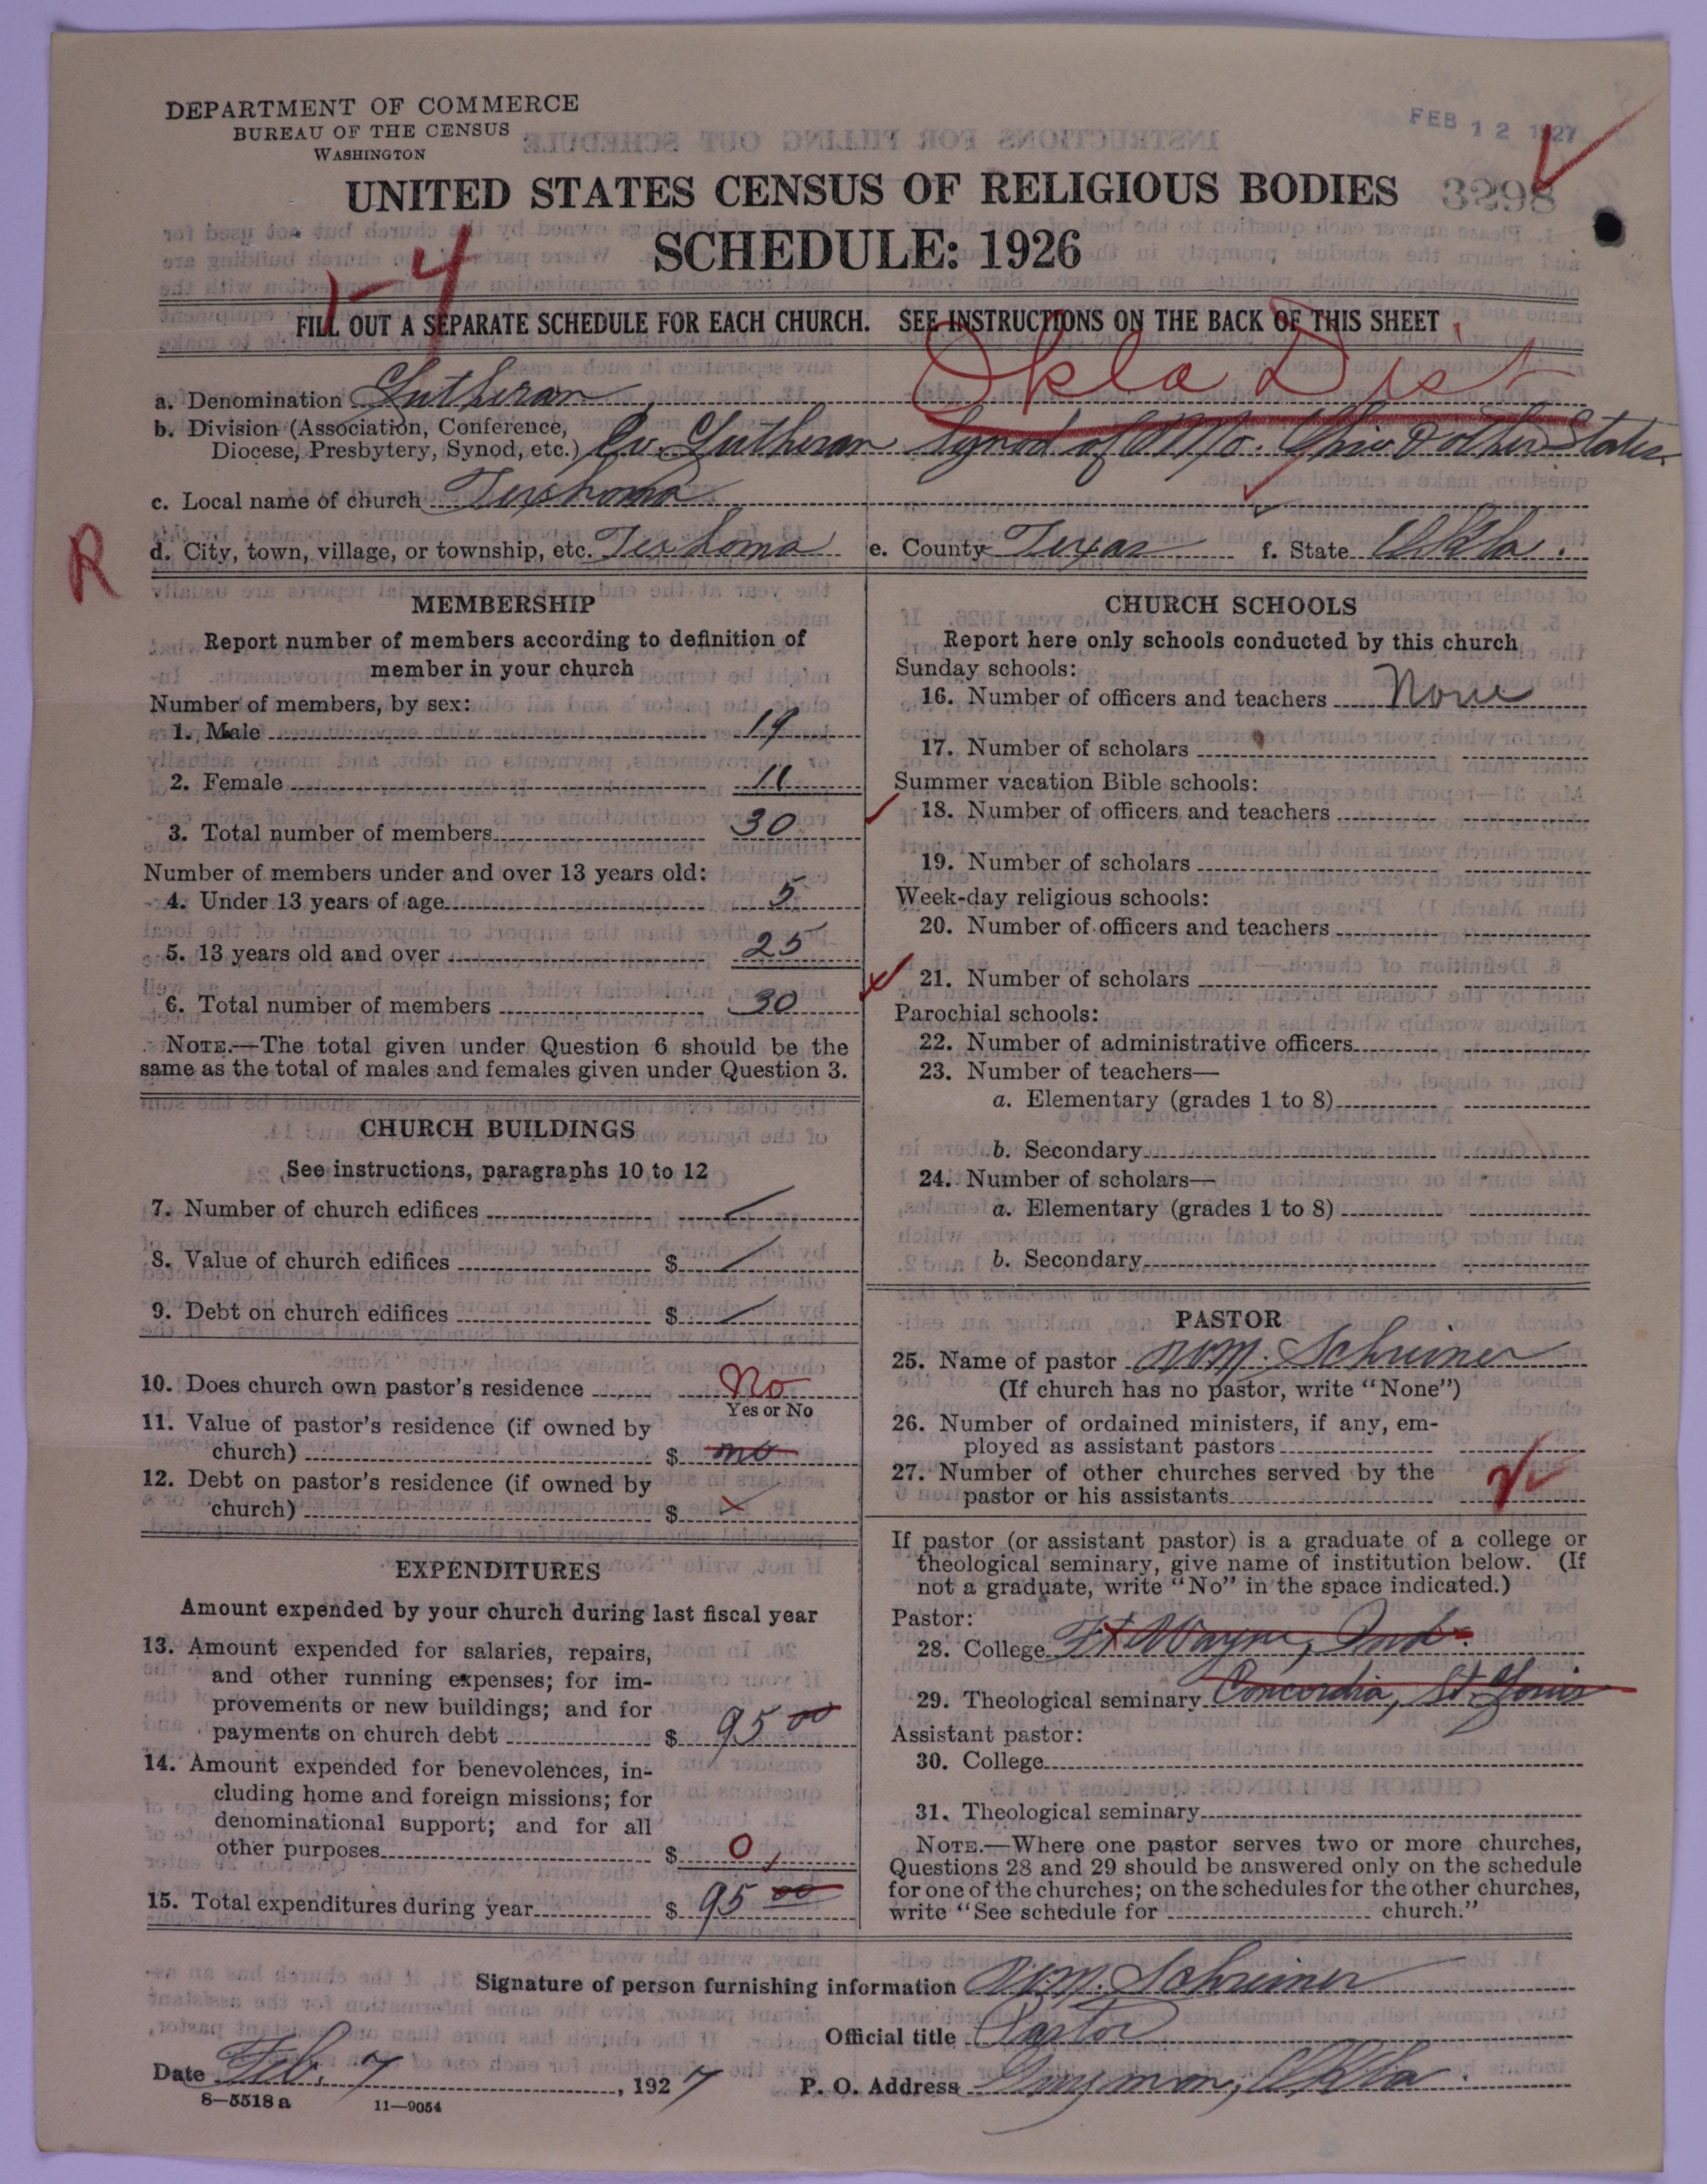 DEPARTMENT OF COMMERCE
BUREAU OF THE CENSUS
WASHINGTON
FEB 12 1927
UNITED STATES CENSUS OF RELIGIOUS BODIES
3298
SCHEDULE: 1926
1-4
FILL OUT A SEPARATE SCHEDULE FOR EACH CHURCH. SEE INSTRUCTIONS ON THE BACK OF THIS SHEET
Okla Dist
a. Denomination Lutheran
b. Division (Association, Conference,
Diocese, Presbytery, Synod, etc.) Ev. Lutheran Synod of Mo. Ohio & other States
c. Local name of church Texhoma
R
d. City, town, village, or township, etc. Texhoma e. County Texas f. State Okla.
MEMBERSHIP
Report number of members according to definition of
member in your church
Number of members, by sex:
1. Male 19
2. Female 11
3. Total number of members 30
Number of members under and over 13 years old:
4. Under 13 years of age 5
5. 13 years old and over 25
6. Total number of members 30
NOTE.—The total given under Question 6 should be the
same as the total of males and females given under Question 3.
CHURCH BUILDINGS
See instructions, paragraphs 10 to 12
7. Number of church edifices
8. Value of church edifices $
9. Debt on church edifices $
10. Does church own pastor's residence No
Yes or No
11. Value of pastor's residence (if owned by
church) $ no
12. Debt on pastor's residence (if owned by
church) $
EXPENDITURES
Amount expended by your church during last fiscal year
13. Amount expended for salaries, repairs,
and other running expenses; for im-
provements or new buildings; and for
payments on church debt $ 95 00
14. Amount expended for benevolences, in-
cluding home and foreign missions; for
denominational support; and for all
other purposes $ 0
15. Total expenditures during year $ 95 00
CHURCH SCHOOLS
Report here only schools conducted by this church
Sunday schools:
16. Number of officers and teachers None
17. Number of scholars
Summer vacation Bible schools:
18. Number of officers and teachers
19. Number of scholars
Week-day religious schools:
20. Number of officers and teachers
21. Number of scholars
Parochial schools:
22. Number of administrative officers
23. Number of teachers—
a. Elementary (grades 1 to 8)
b. Secondary
24. Number of scholars—
a. Elementary (grades 1 to 8)
b. Secondary
PASTOR
25. Name of pastor Wm. Schreiner
(If church has no pastor, write "None")
26. Number of ordained ministers, if any, em-
ployed as assistant pastors
27. Number of other churches served by the
pastor or his assistants
If pastor (or assistant pastor) is a graduate of a college or
theological seminary, give name of institution below. (If
not a graduate, write "No" in the space indicated.)
Pastor:
28. College Ft Wayne, Ind.
29. Theological seminary Concordia, St. Louis
Assistant pastor:
30. College
31. Theological seminary
NOTE.—Where one pastor serves two or more churches,
Questions 28 and 29 should be answered only on the schedule
for one of the churches; on the schedules for the other churches,
write "See schedule for church."
Signature of person furnishing information Wm. Schreiner
Official title Pastor
Date Feb. 7, 1927 P. O. Address Guymon, Okla.
8—5518 a 11—9054